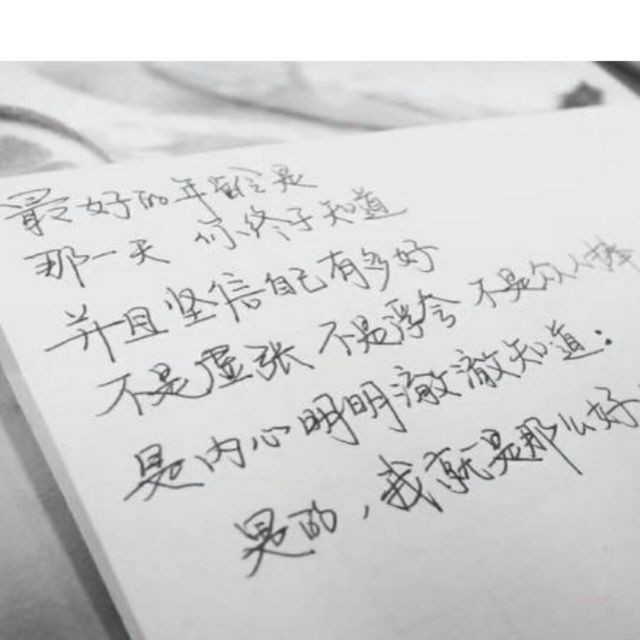 最好的年龄是
那一天 你终于知道
并且坚信自己有多好
不是虚张 不是浮夸 不是众人捧
是内心明明澈澈知道：
是的，我就是那么好